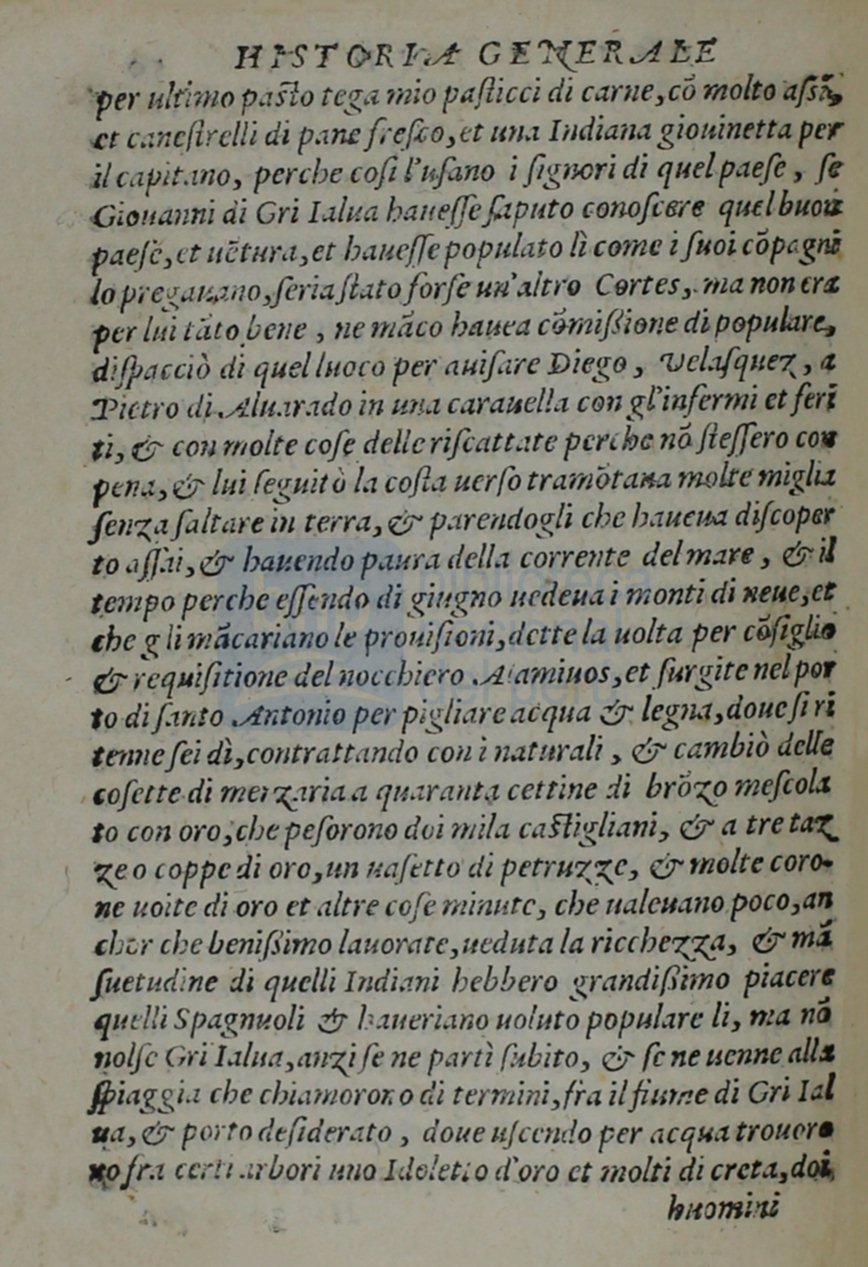 HISTORIA GENERALE
per ultimo pasto tega mio pasticci di carne, cõ molto assã,
et canestrelli di pane fresco, et una Indiana giouinetta per
il capitano, perche cosi l'usano i signori di quel paese, se
Giouanni di Gri Ialua hauesse saputo conoscere quel buon
paese, et uẽtura, et hauesse populato lì come i suoi cõpagni
lo pregauano, seria stato forse un'altro Cortes, ma non era
per lui tãto bene, ne mãco hauea cõmissione di populare,
dispacciò di quel luoco per auisare Diego, Velasquez, a
Pietro di Aluarado in una carauella con gl'infermi et feri
ti, & con molte cose delle riscattate perche nõ stessero con
pena, & lui seguitò la costa uerso tramõtana molte miglia
senza saltare in terra, & parendogli che haueua discoper
to assai, & hauendo paura della corrente del mare, & il
tempo perche essendo di giugno uedeua i monti di neue, et
che g li mãcariano le prouisioni, dette la uolta per cõsiglio
& requisitione del nocchiero Alaminos, et surgite nel por
to di santo Antonio per pigliare acqua & legna, doue si ri
tenne sei dì, contrattando con i naturali, & cambiò delle
cosette di merzaria a quaranta cettine di brõzo mescola
to con oro, che pesorono doi mila castigliani, & a tre taz
ze o coppe di oro, un uasetto di petruzze, & molte coro-
ne uoite di oro et altre cose minute, che ualeuano poco, an
chor che benissimo lauorate, ueduta la ricchezza, & mã
suetudine di quelli Indiani hebbero grandissimo piacere
quelli Spagnuoli & haueriano uoluto populare li, ma nõ
uolse Gri Ialua, anzi se ne partì subito, & se ne uenne alla
spiaggia che chiamorono di termini, fra il fiume di Gri Ial
ua, & porto desiderato, doue uscendo per acqua trouoro
no fra certi arbori uno Idoletto d'oro et molti di creta, doi
huomini